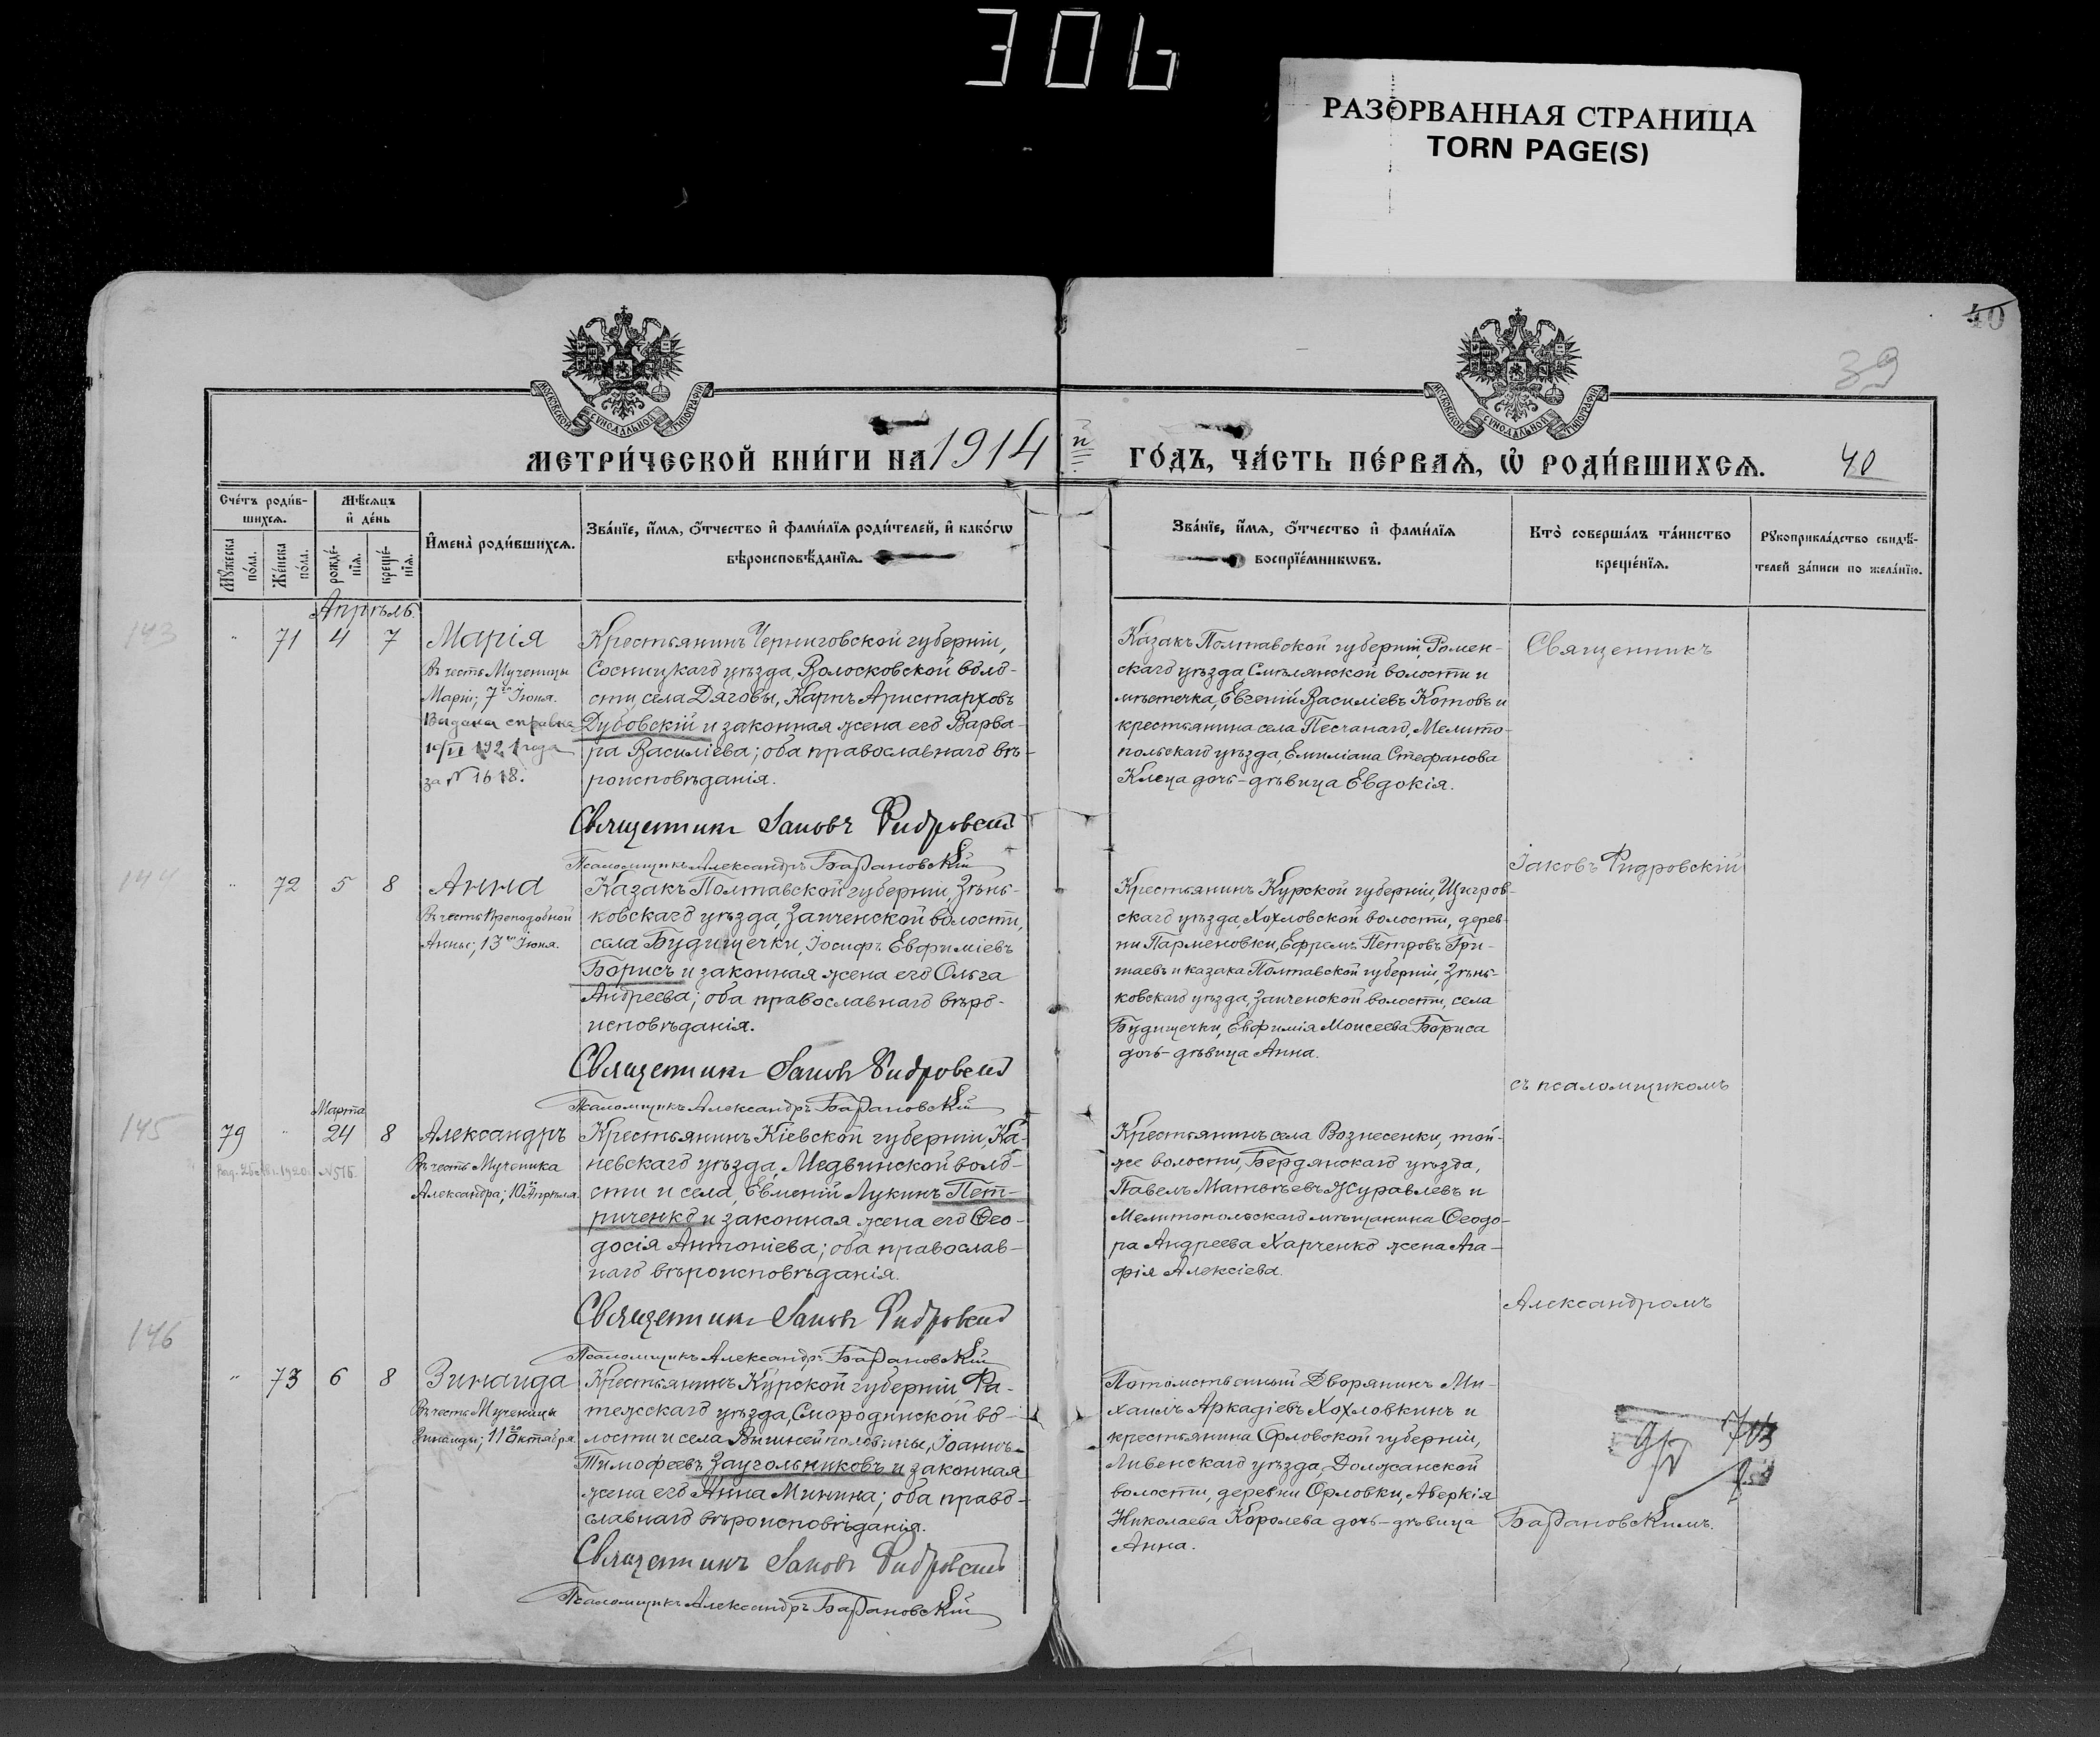 306
РАЗОРВАННАЯ СТРАНИЦА
TORN PAGE(S)
40
39
МОСКОВСКОЙ СѴНОДАЛЬНОЙ ТИПОГРАФІИ
МОСКОВСКОЙ СѴНОДАЛЬНОЙ ТИПОГРАФІИ
МЕТРИ́ЧЕСКОЙ КНИ́ГИ НА 1914 й ГО́ДЪ, ЧА́СТЬ ПЕ́РВАѦ, Ѡ҆ РОДИ́ВШИХСѦ.
40
Сче́тъ роди́в-
шихсѧ.
Мѣ́сѧцъ
и҆ де́нь
Мꙋ́жеска по́ла.
Же́нска по́ла.
рожде́-нїѧ.
креще́-нїѧ.
И҆мена̀ роди́вшихсѧ.
Зва́нїе, и҆́мѧ, ѻ҆́тчество и҆ фами́лїѧ роди́телей, и҆ како́гѡ
вѣроисповѣ́данїѧ.
Зва́нїе, и҆́мѧ, ѻ҆́тчество и҆ фами́лїѧ
воспрїе́мникѡвъ.
Кто̀ соверша́лъ та́инство
креще́нїѧ.
Рꙋкоприкла́дство свидѣ́-
телей за́писи по жела́нїю.
Апрѣль.
143
" 71 4 7
Марія
Въ честь Мученицы
Маріи; 7го Іюня.
Выдана справка
10/VI 1921 года
за № 1618.
Крестьянинъ Черниговской губерніи,
Сосницкаго уѣзда, Волосковской воло-
сти, села Дяговы, Карпъ Аристарховъ
Дубовскій и законная жена его Варва-
ра Василіева; оба православнаго вѣ-
роисповѣданія.
Священникъ Іаковъ Фидровскій
Псаломщикъ Александръ Барановскій
Казакъ Полтавской губерніи, Ромен-
скаго уѣзда Смѣлянской волости и
мѣстечка, Евгеній Василіевъ Котовъ и
крестьянина села Песчанаго, Мелито-
польскаго уѣзда, Емиліана Стефанова
Клеца дочь-дѣвица Евдокія.
Священникъ
Іаковъ Фидровскій
144
" 72 5 8
Анна
Въ честь Преподобной
Анны; 13го Іюня.
Казакъ Полтавской губерніи, Зѣнь-
ковскаго уѣзда, Заиченской волости,
села Будищечки, Іосифъ Евфиміевъ
Борисъ и законная жена его Ольга
Андреева; оба православнаго вѣро-
исповѣданія.
Священникъ Іаковъ Фидровскій
Псаломщикъ Александръ Барановскій
Крестьянинъ Курской губерніи, Щигров-
скаго уѣзда, Хохловской волости, дерев-
ни Парменовки, Ефремъ Петровъ Гри-
шаевъ и казака Полтавской губерніи, Зѣнь-
ковскаго уѣзда, Заиченской волости, села
Будищечки, Евфимія Моисеева Бориса
дочь-дѣвица Анна.
съ псаломщикомъ
145
Марта
79 " 24 8
№ 516.
Александръ
Въ честь Мученика
Александра; 10го Апрѣля.
Крестьянинъ Кіевской губерніи, Ка-
невскаго уѣзда, Медвинской воло-
сти и села, Евменій Лукинъ Пет-
риченко и законная жена его Ѳео-
досія Антоніева; оба православ-
наго вѣроисповѣданія.
Священникъ Іаковъ Фидровскій
Псаломщикъ Александръ Барановскій
Крестьянинъ села Вознесенки, той-
же волости, Бердянскаго уѣзда,
Павелъ Матвѣевъ Журавлевъ и
Мелитопольскаго мѣщанина Ѳеодо-
ра Андреева Харченко жена Ага-
фія Алексіева.
Александромъ
146
" 73 6 8
Зинаида
Въ честь Мученицы
Зинаиды; 11го Октября.
Крестьянинъ Курской губерніи Фа-
тежскаго уѣзда, Смородинской во-
лости и села Вышней половины, Іоаннъ
Тимофеевъ Заугольниковъ и законная
жена его Анна Минина; оба право-
славнаго вѣроисповѣданія.
Священникъ Іаковъ Фидровскій
Псаломщикъ Александръ Барановскій
Потомственный Дворянинъ Ми-
хаилъ Аркадіевъ Хохловкинъ и
крестьянина Орловской губерніи,
Ливенскаго уѣзда, Должанской
волости, деревни Орловки, Аверкія
Николаева Королева дочь-дѣвица
Анна.
Барановскимъ.